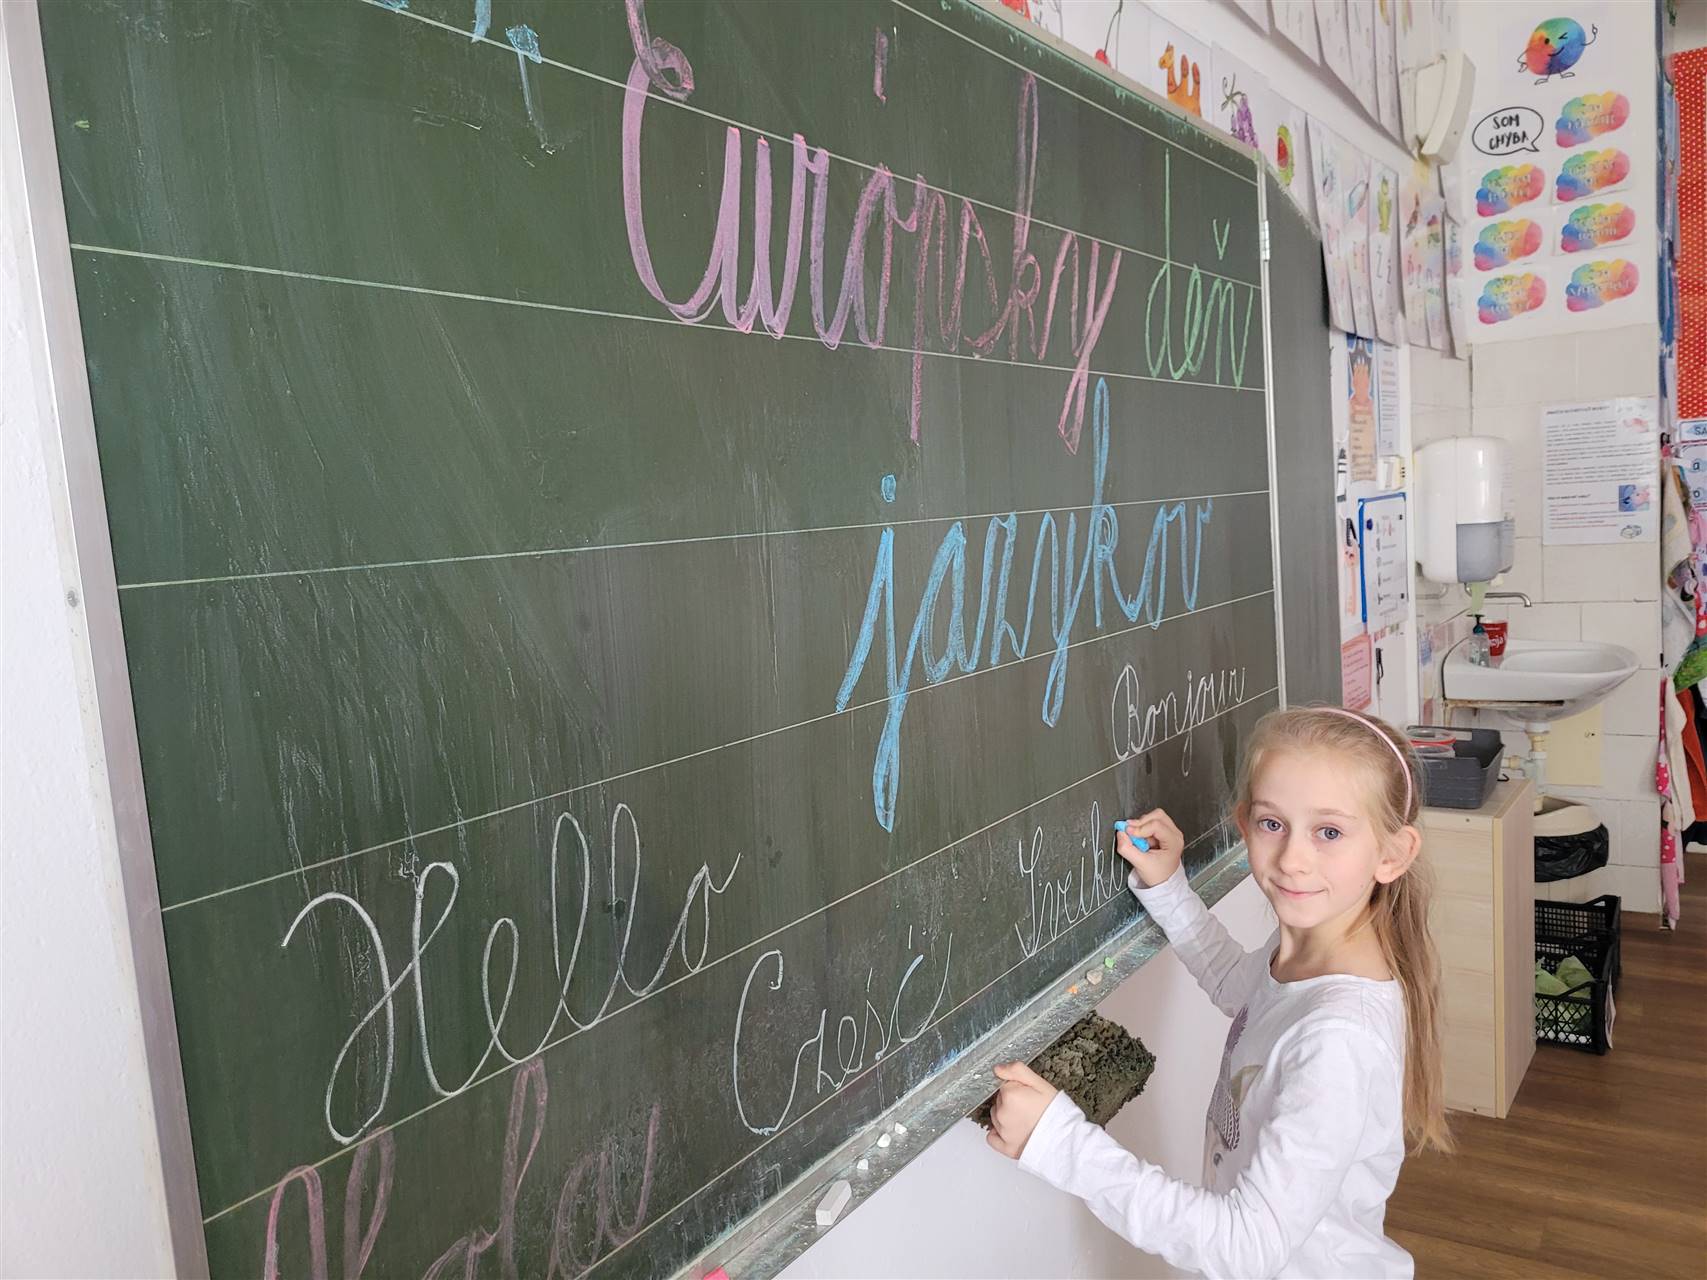 Európsky deň
jazykov
Bonjour
Hello
Cześć
Sveiki
Hola
SOM
CHYBA